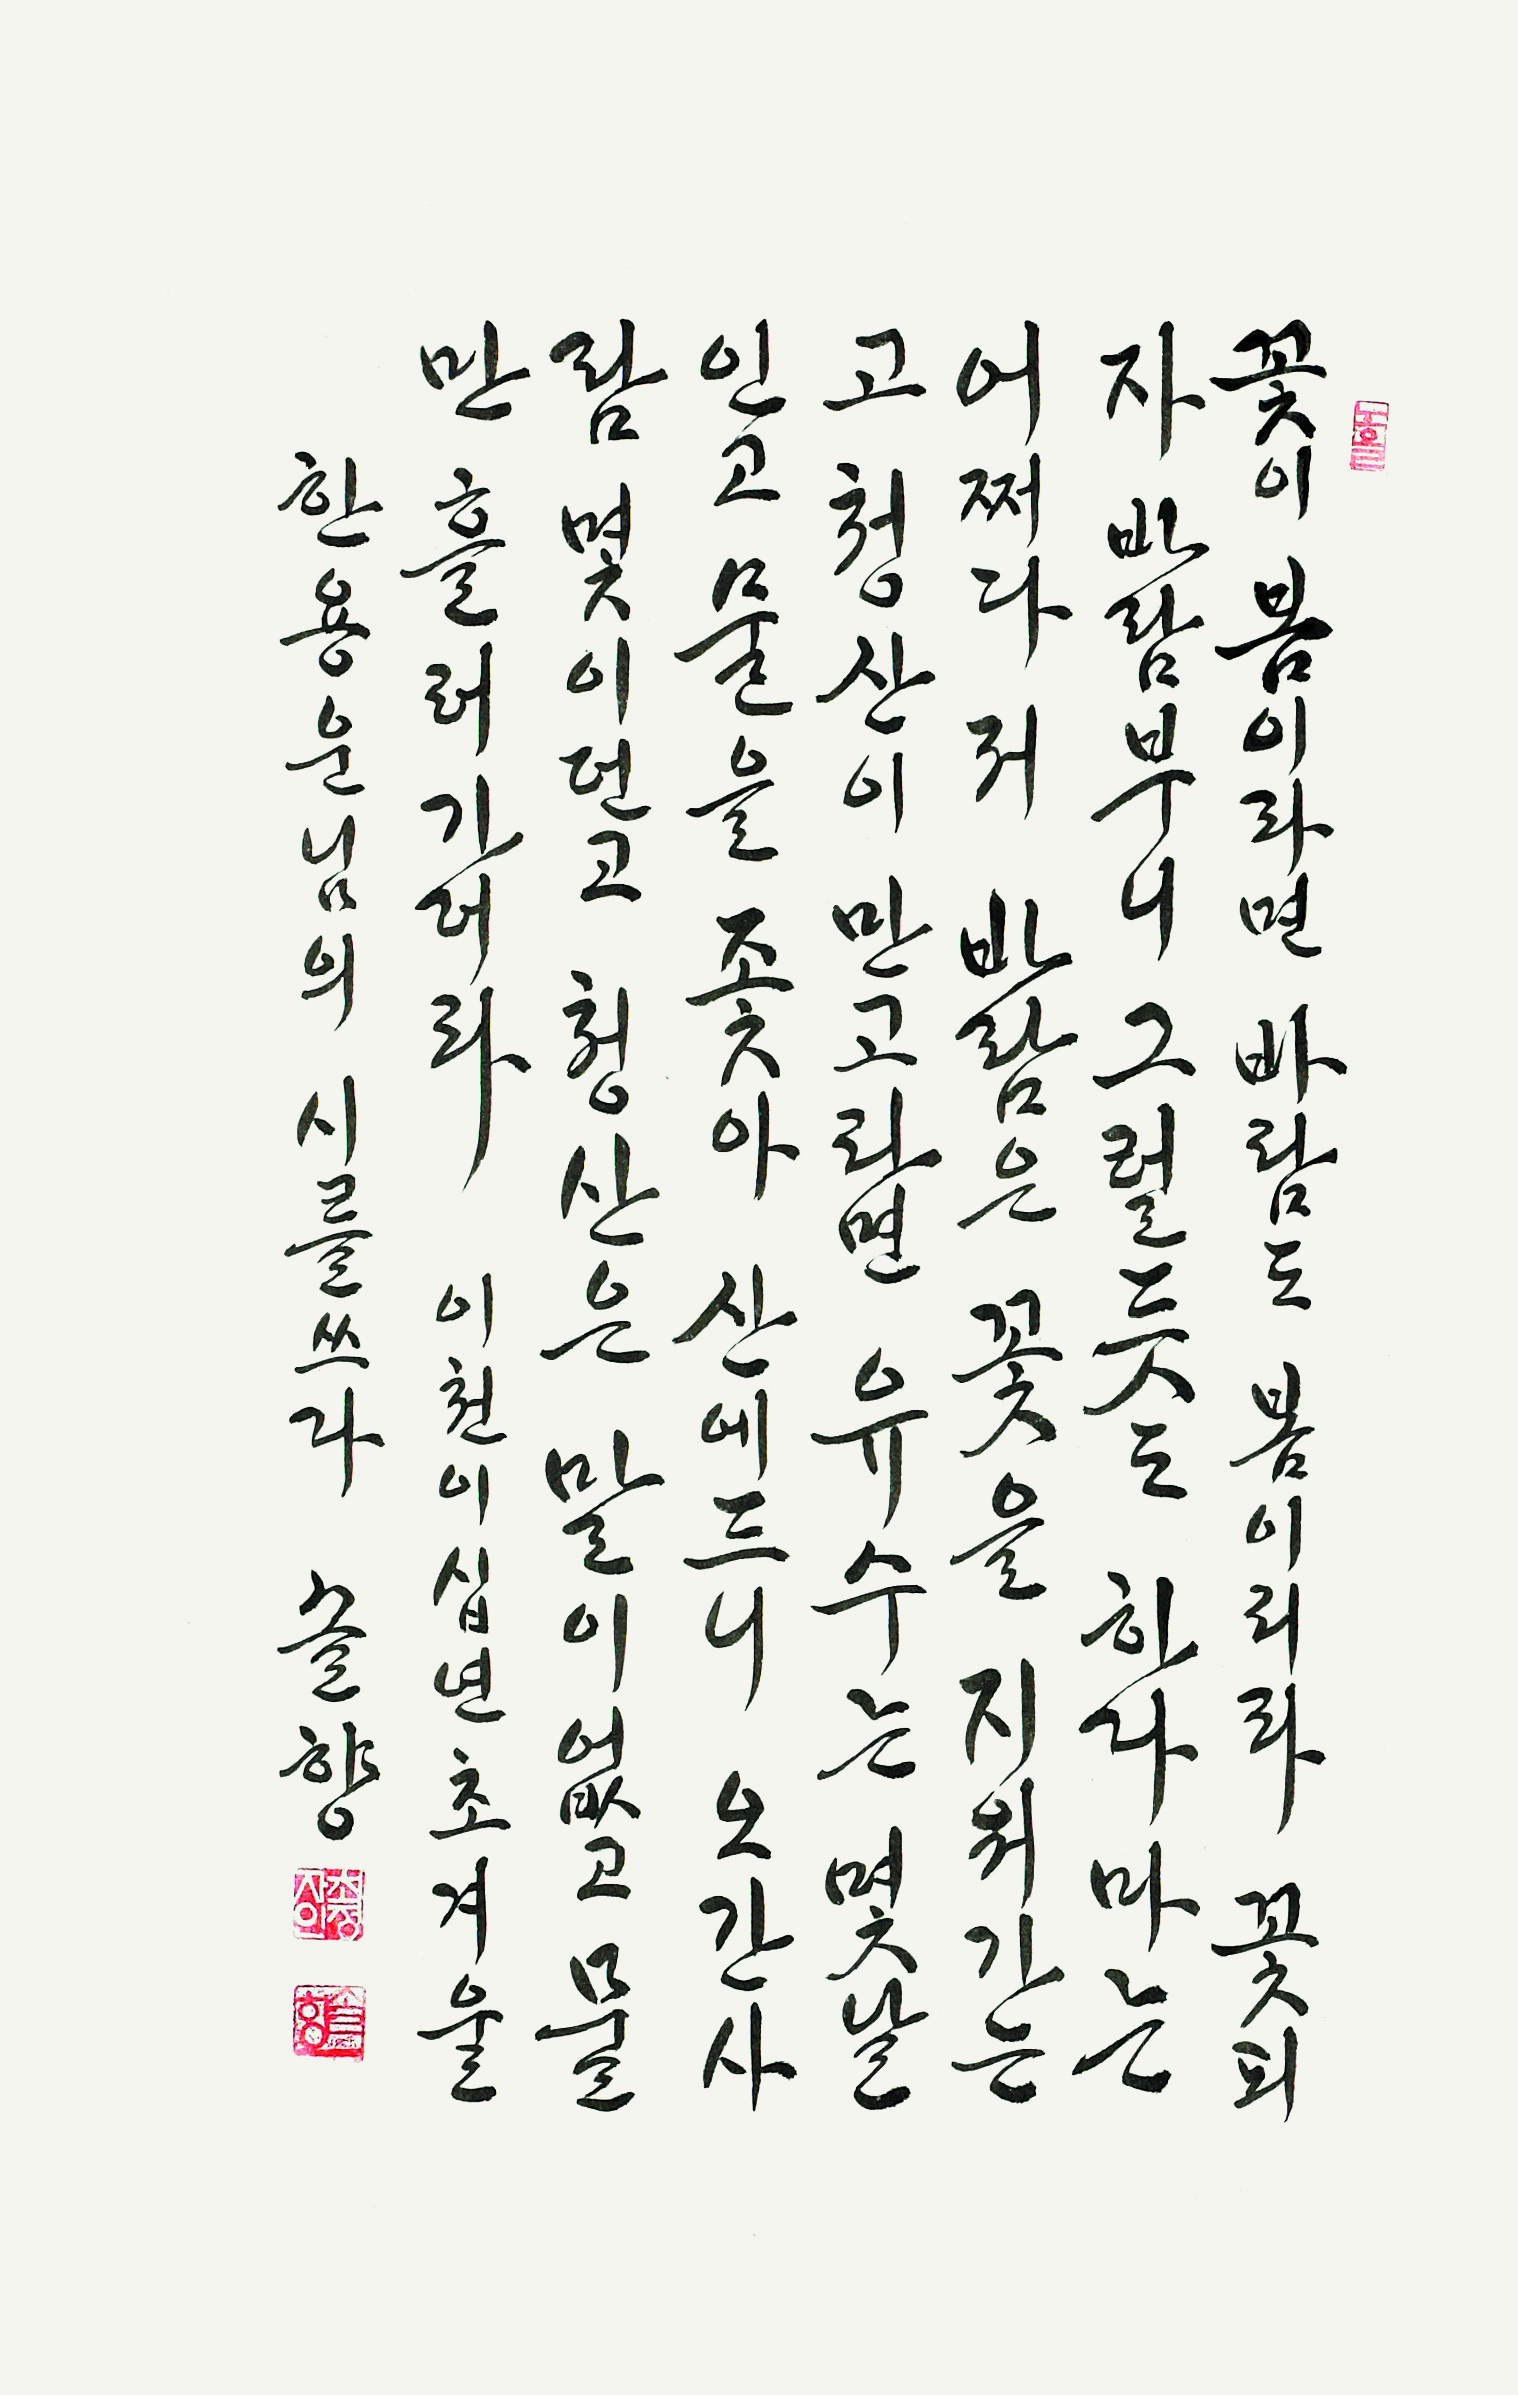 꽃이 봄이라면 바람도 봄이리라 꽃피
자 바람부니 그럴듯도 하다마는
어쩌다 저 바람은 꽃을 지워가는
고 청산이 만고라면 유수는 몇날
인고 물을 좇아 산에드니 오간사
람 몇이던고 청산은 말이없고 물
만 흘러가더라 이천이십년 초겨울
한용운님의 시를쓰다 솔향